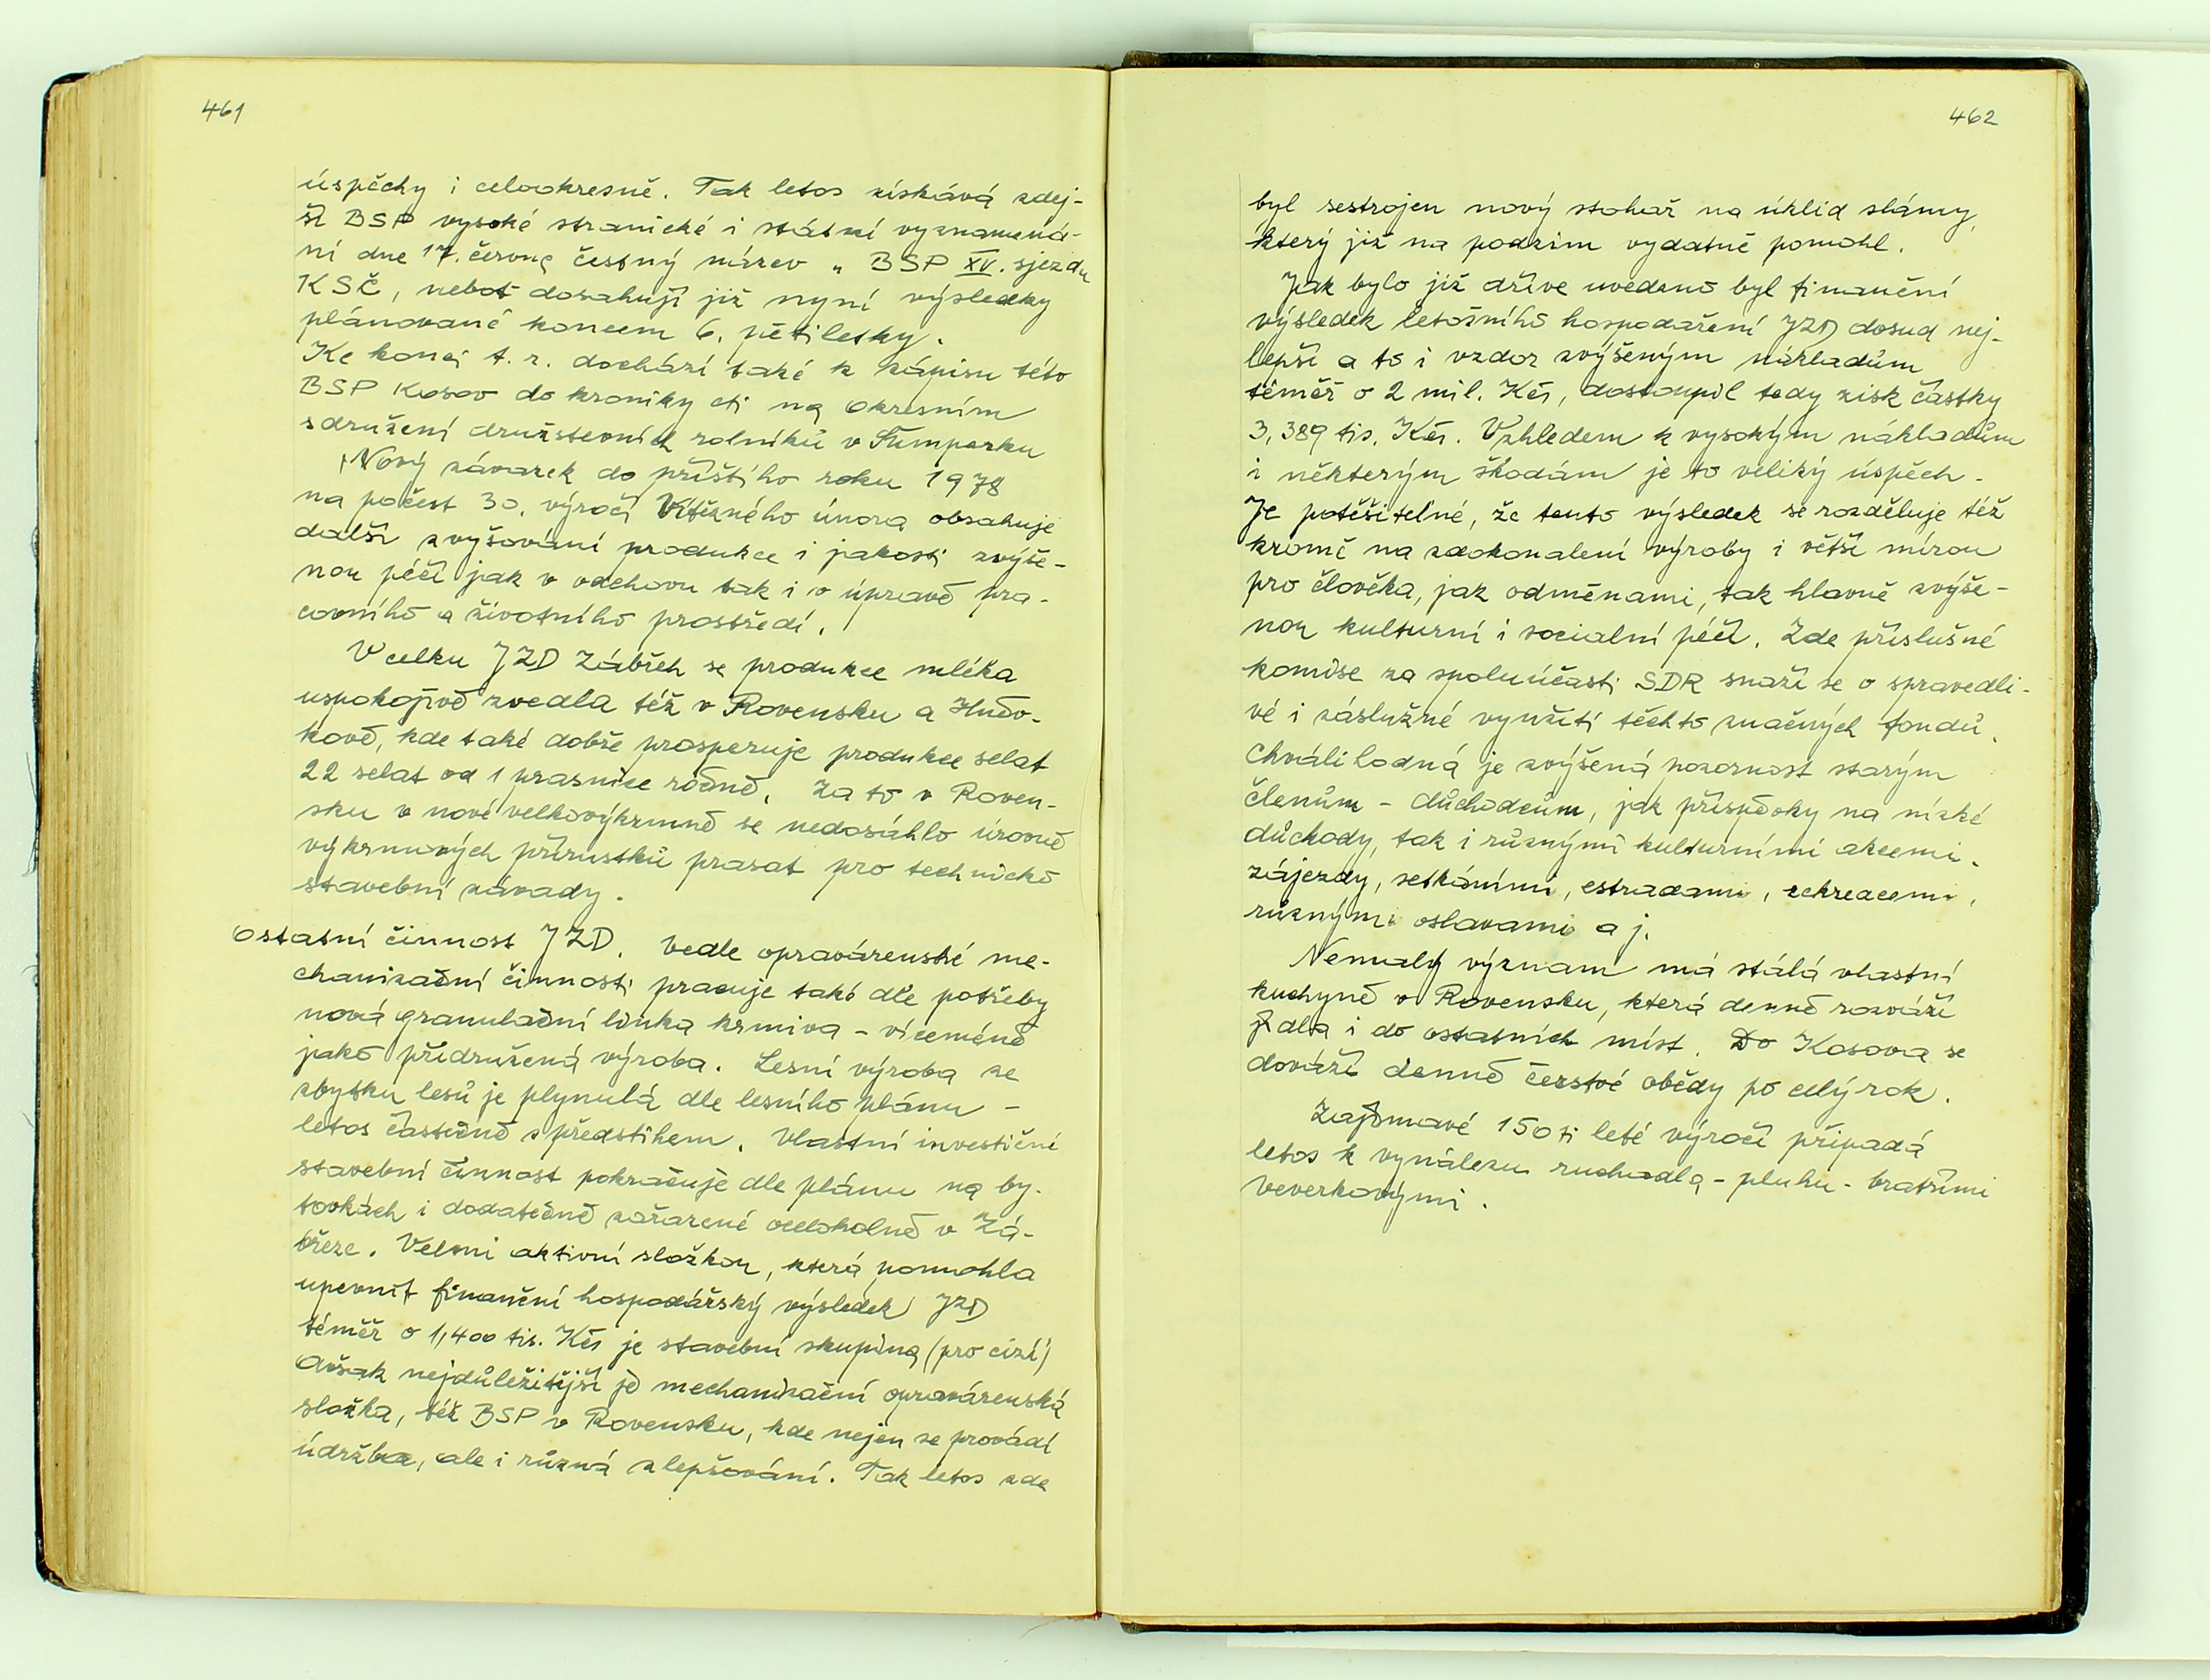 461
úspěchy i celookresně. Tak letos získává zdej-
ší BSP vysoké stranické i státní vyznamená-
ní dne 17. června čestný název „ BSP XV. sjezdu
KSČ, neboť dosahují již nyní výsledky
plánované koncem 6. pětiletky.
Ke konci t. r. dochází také k zápisu této
BSP Kosov do kroniky cti na Okresním
sdružení družstevních rolníků v Šumperku
Nový závazek do příštího roku 1978
na počest 30. výročí Vítězného února obsahuje
další zvyšování produkce i jakosti zvýše-
nou péčí jak v odchovu tak i v úpravě pra-
covního a životního prostředí.
V celku JZD Zábřeh se produkce mléka
uspokojivě zvedla též v Rovensku a Hněv-
kově, kde také dobře prosperuje produkce selat
22 selat od 1 prasnice ročně. Za to v Roven-
sku v nové velkovýkrmně se nedosáhlo úrovně
výkrmových přírustků prasat pro technické
stavební závady.
Ostatní činnost JZD. Vedle opravárenské me-
chanizační činnosti pracuje také dle potřeby
nová granulační linka krmiva – víceméně
jako přidružená výroba. Lesní výroba ze
zbytku lesů je plynulá dle lesního plánu –
letos částečně s předstihem. Vlastní investiční
stavební činnost pokračuje dle plánu na by-
tovkách i dodatečně zařazené ocelokolně v Zá-
březe. Velmi aktivní složkou, která pomohla
upevnit finanční hospodářský výsledek JZD
téměř o 1,400 tis. Kčs je stavební skupina (pro cizí)
Avšak nejdůležitější je mechanizační opravárenská
složka, též BSP v Rovensku, kde nejen se provádí
údržba, ale i různá zlepšování. Tak letos zde
462
byl sestrojen nový stohař na úklid slámy,
který již na podzim vydatně pomohl.
Jak bylo již dříve uvedeno byl finanční
výsledek letošního hospodaření JZD dosud nej-
lepší a to i vzdor zvýšeným nákladům
téměř o 2 mil. Kčs, dostoupil tedy zisk částky
3,389 tis. Kčs. Vzhledem k vysokým nákladům
i některým škodám je to veliký úspěch.
Je potěšitelné, že tento výsledek se rozděluje též
kromě na zdokonalení výroby i větší mírou
pro člověka, jak odměnami, tak hlavně zvýše-
nou kulturní i socialní péčí. Zde příslušné
komise za spoluúčasti SDR snaží se o spravedli-
vé i záslužné využití těchto značných fondů.
Chválihodná je zvýšená pozornost starým
členům – důchodcům, jak příspěvky na nízké
důchody, tak i různými kulturními akcemi.
zájezdy, setkáními, estradami, rekreacemi,
různými oslavami a j.
Nemalý význam má stálá vlastní
kuchyně v Rovensku, která denně rozváží
jídla i do ostatních míst. Do Kosova se
dováží denně čerstvé obědy po celý rok.
Zajímavé 150 ti leté výročí připadá
letos k vynálezu ruchadla – pluhu – bratřími
Veverkovými.